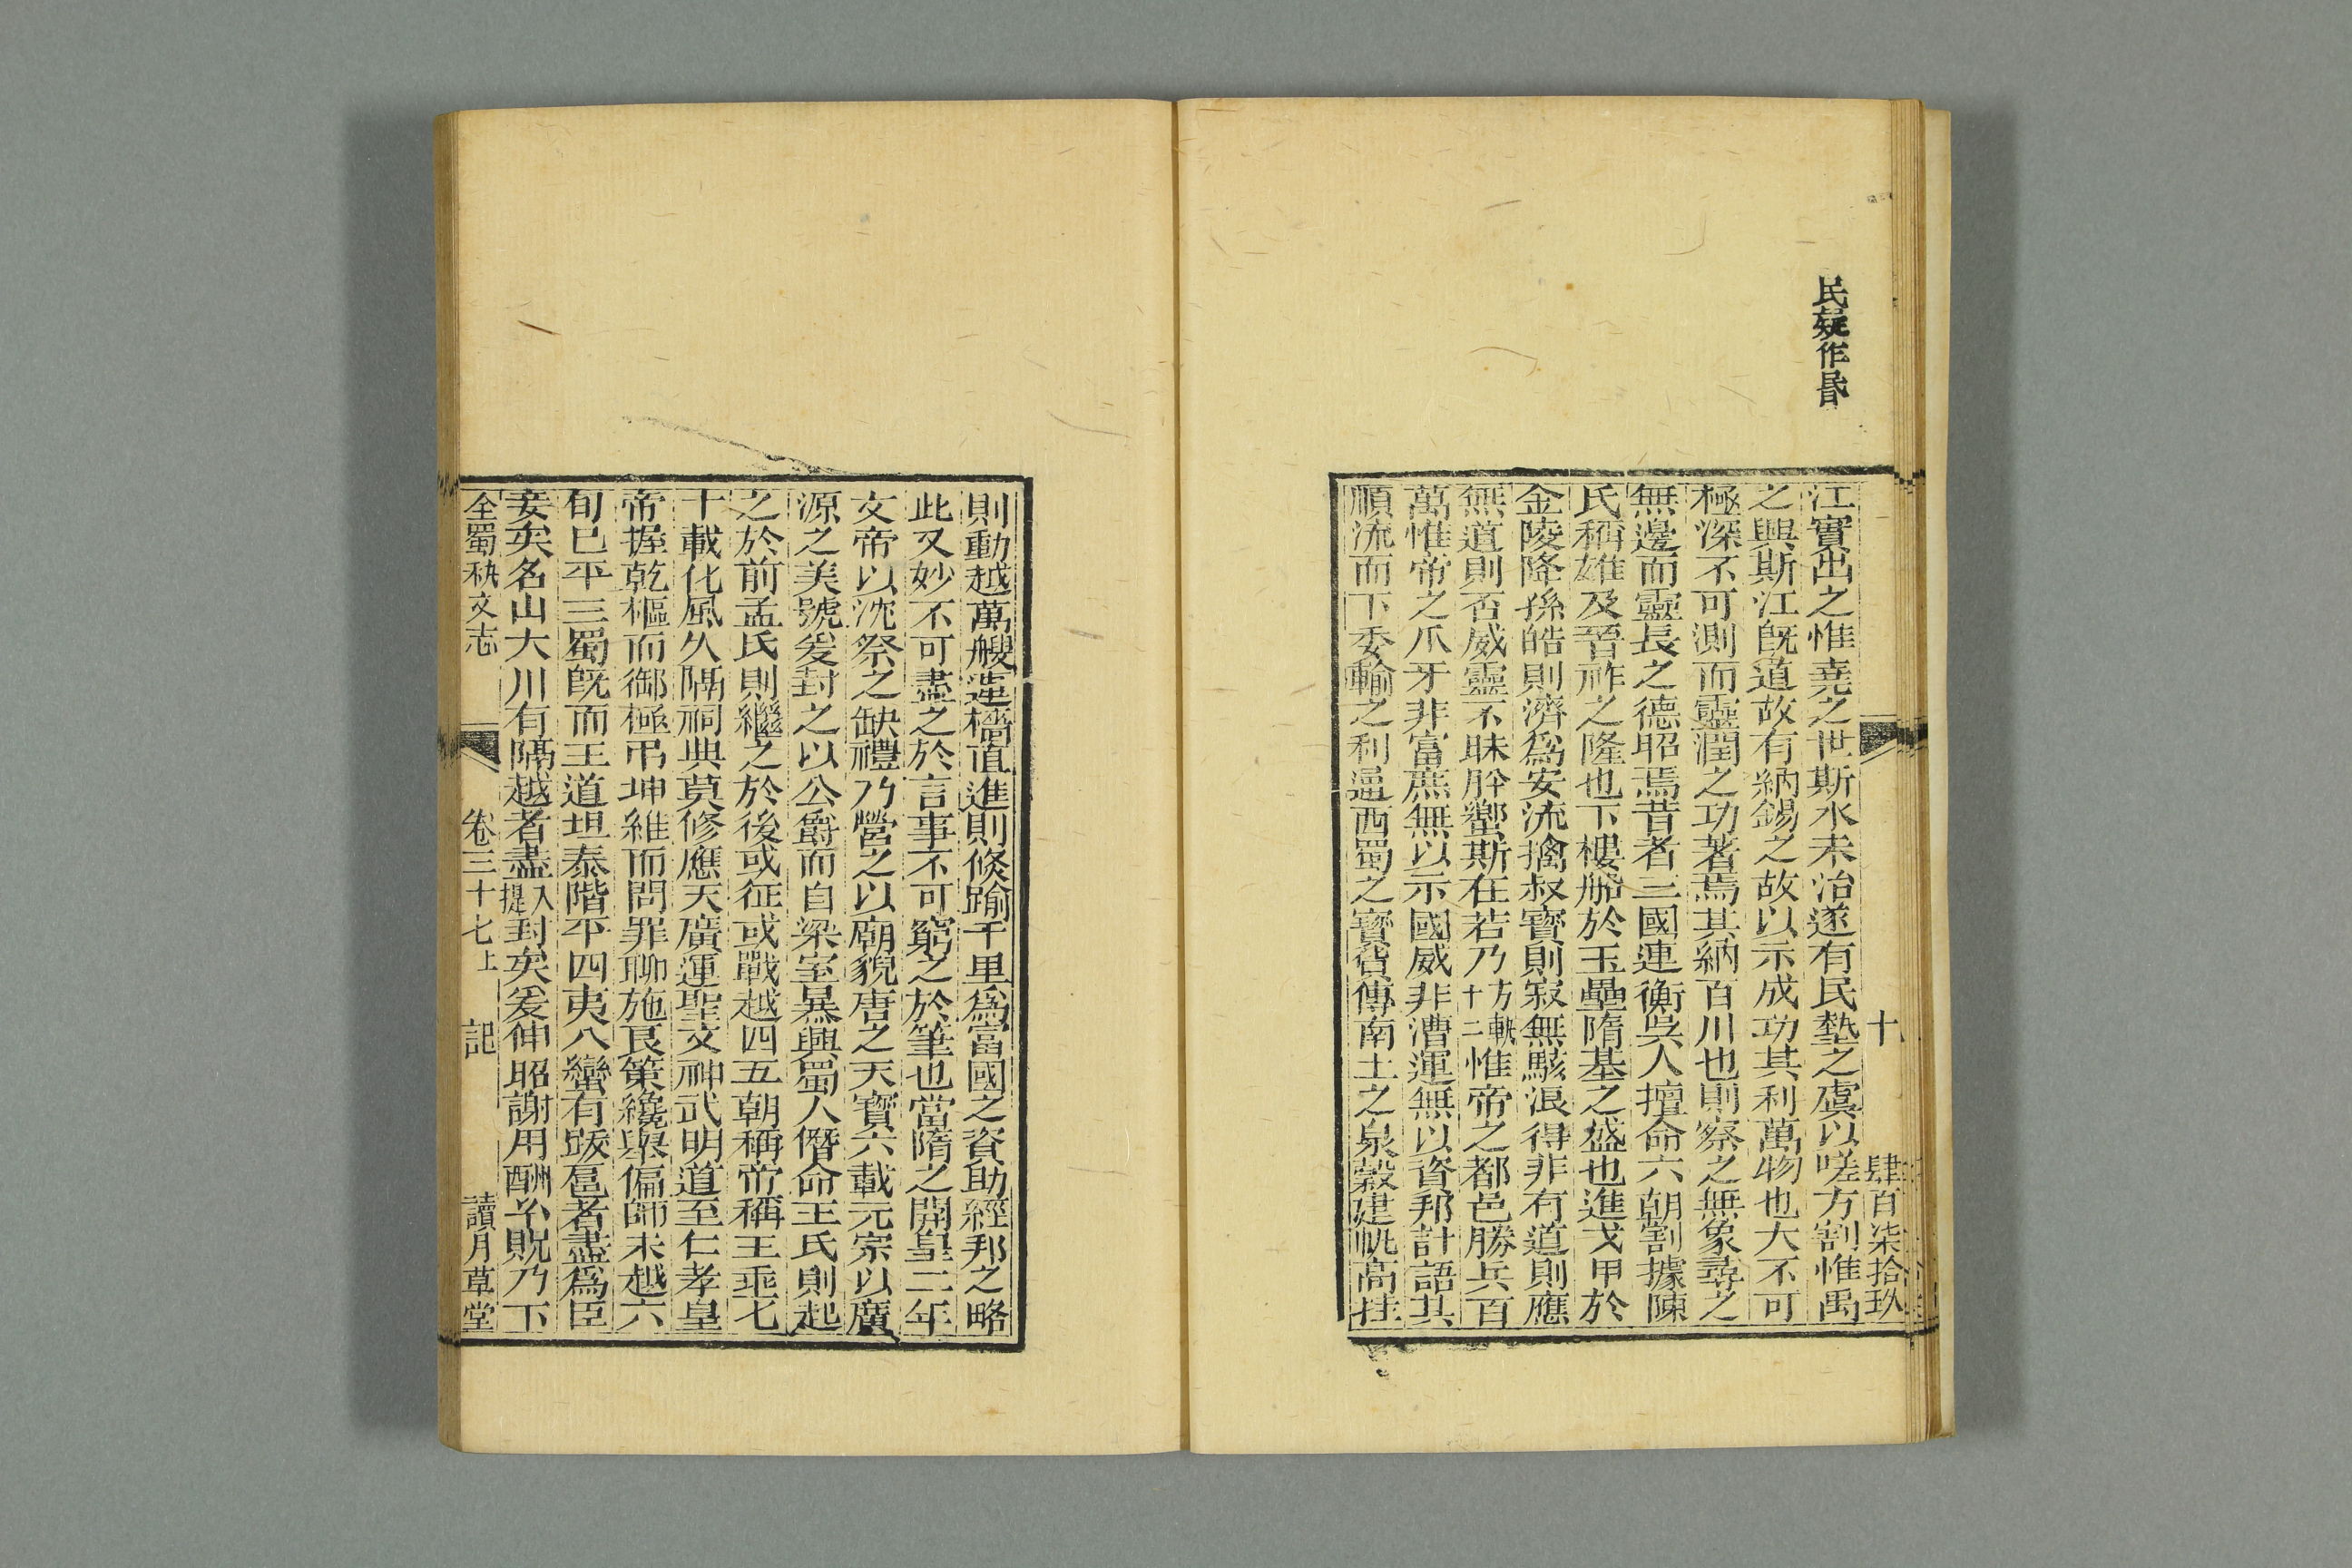 民疑作昬
十
肆百柒拾玖
江實出之惟堯之世斯水未治遂有民墊之虞以嗟方割惟禹
之興斯江旣道故有納錫之故以示成功其利萬物也大不可
極深不可測而靈潤之功著焉其納百川也則察之無象尋之
無邊而靈長之德昭焉昔者三國連衡吳人擅命六朝割據陳
氏稱雄及晉祚之隆也下樓船於玉壘隋基之盛也進戈甲於
金陵降孫皓則濟爲安流擒叔寳則寂無駭浪得非有道則應
無道則否威靈不昧肸蠁斯在若乃方輿十二惟帝之都邑勝兵百
萬惟帝之爪牙非富庶無以示國威非漕運無以資邦計語其
順流而下委輸之利逼西蜀之寳貨傳南土之泉穀建帆高挂
則動越萬艘連檣直進則倐踰千里爲富國之資助經邦之略
此又妙不可盡之於言事不可窮之於筆也當隋之開皇二年
文帝以沈祭之缺禮乃營之以廟貌唐之天寳六載元宗以廣
源之美號爰封之以公爵而自梁室㬥興蜀人僭命王氏則起
之於前孟氏則繼之於後或征或戰越四五朝稱帝稱王垂七
十載化風久隔祠典莫修應天廣運聖文神武明道至仁孝皇
帝握乾樞而御極弔坤維而問罪聊施艮策纔舉偏師未越六
旬巳平三蜀旣而王道坦泰階平四夷八蠻有䟦扈者盡爲臣
妾矣名山大川有隔越者盡入提封矣爰伸昭謝用酬幺貺乃下
全蜀秇文志
卷三十七上
記
讀月草堂